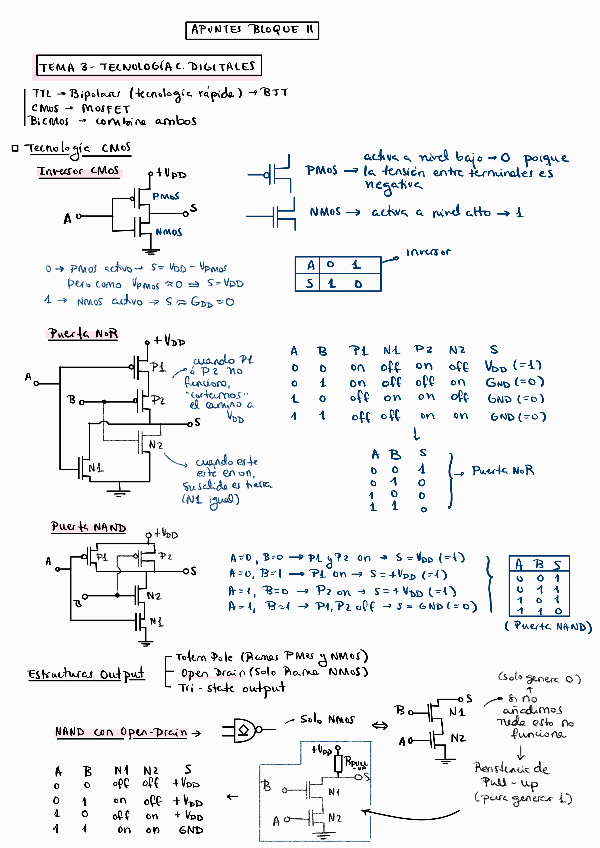 APUNTES BLOQUE II
TEMA 3 - TECNOLOGÍA C. DIGITALES
TTL → Bipolares (tecnología rápida) → BJT
CMOS → MOSFET
BiCMOS → combina ambos
Tecnología CMOS
Inversor CMOS
+VDD
PMOS
A
S
NMOS
activa a nivel bajo → 0 porque
PMOS → la tensión entre terminales es
negativa
NMOS → activa a nivel alto → 1
0 → PMOS activo → S = VDD - VPMOS
pero como VPMOS ≈ 0 ⇒ S = VDD
1 → NMOS activo → S ≈ GDD = 0
Inversor
A 0 1
S 1 0
Puerta NOR
+VDD
A
P1
B
P2
S
N2
N1
cuando P1
ó P2 no
funciona,
"cortamos"
el camino a
VDD
cuando este
esté en on,
su salida es tierra
(N1 igual)
A B P1 N1 P2 N2 S
0 0 on off on off VDD (=1)
0 1 on off off on GND (=0)
1 0 off on on off GND (=0)
1 1 off off on on GND (=0)
A B S
0 0 1
0 1 0
1 0 0
1 1 0
→ Puerta NOR
Puerta NAND
+VDD
P1
P2
A
S
B
N2
N1
A=0, B=0 → P1 y P2 on → S = VDD (=1)
A=0, B=1 → P1 on → S = +VDD (=1)
A=1, B=0 → P2 on → S = +VDD (=1)
A=1, B=1 → P1, P2 off → S = GND (=0)
A B S
0 0 1
0 1 1
1 0 1
1 1 0
(Puerta NAND)
Estructuras Output
Totem Pole (Ramas PMOS y NMOS)
Open Drain (Solo Rama NMOS)
Tri-state output
NAND con Open-Drain →
Solo NMOS
⇔
S
B
N1
A
N2
(Solo genera 0)
Si no
añadimos
nada esto no
funciona
Resistencia de
Pull-up
(para generar 1)
+VDD
RPULL-UP
S
B
N1
A
N2
A B N1 N2 S
0 0 off off +VDD
0 1 on off +VDD
1 0 off on +VDD
1 1 on on GND